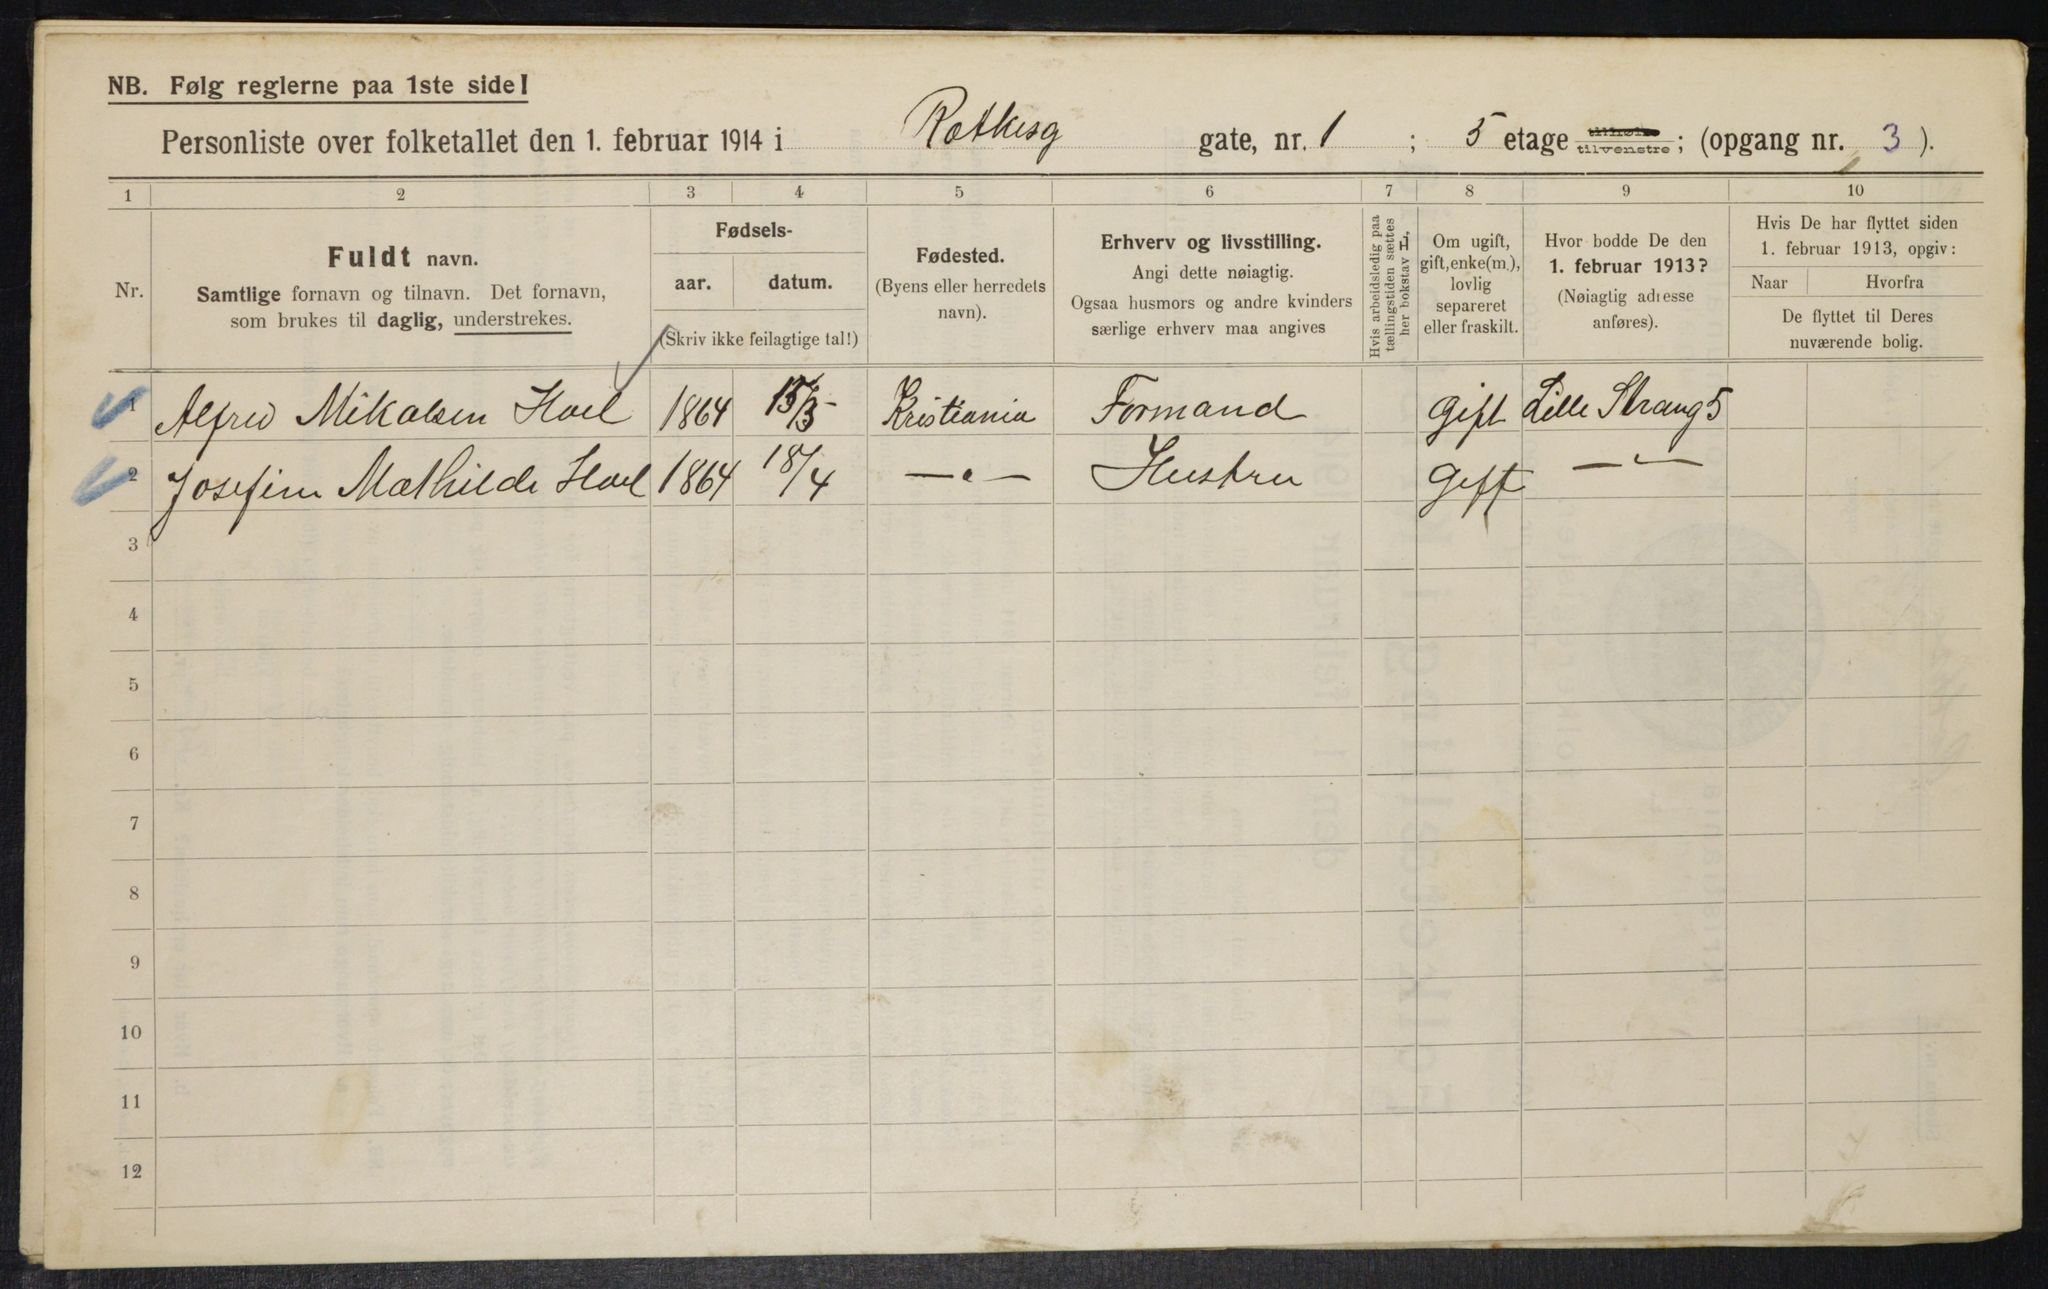 NB. Følg reglerne paa 1ste side!
Personliste over folketallet den 1. februar 1914 i Rathkesg gate, nr. 1 ; 5 etage tilhøire tilvenstre ; (opgang nr. 3 ).
1 2 3 4 5 6 7 8 9 10
Nr.
Fuldt navn.
Samtlige fornavn og tilnavn. Det fornavn,
som brukes til daglig, understrekes.
Fødsels-
aar. datum.
(Skriv ikke feilagtige tal!)
Fødested.
(Byens eller herredets
navn).
Erhverv og livsstilling.
Angi dette nøiagtig.
Ogsaa husmors og andre kvinders
særlige erhverv maa angives
Hvis arbeidsledig paa
tællingstiden sættes
her bokstav L.
Om ugift,
gift, enke(m.),
lovlig
separeret
eller fraskilt.
Hvor bodde De den
1. februar 1913?
(Nøiagtig adresse
anføres).
Hvis De har flyttet siden
1. februar 1913, opgiv:
Naar Hvorfra
De flyttet til Deres
nuværende bolig.
1 Alfred Mikalsen Hoel 1864 15/3 Kristiania Formand gift Lille Strang 5
2 Josefine Mathilde Hoel 1864 18/4 — " — Hustru Gift — " —
3
4
5
6
7
8
9
10
11
12